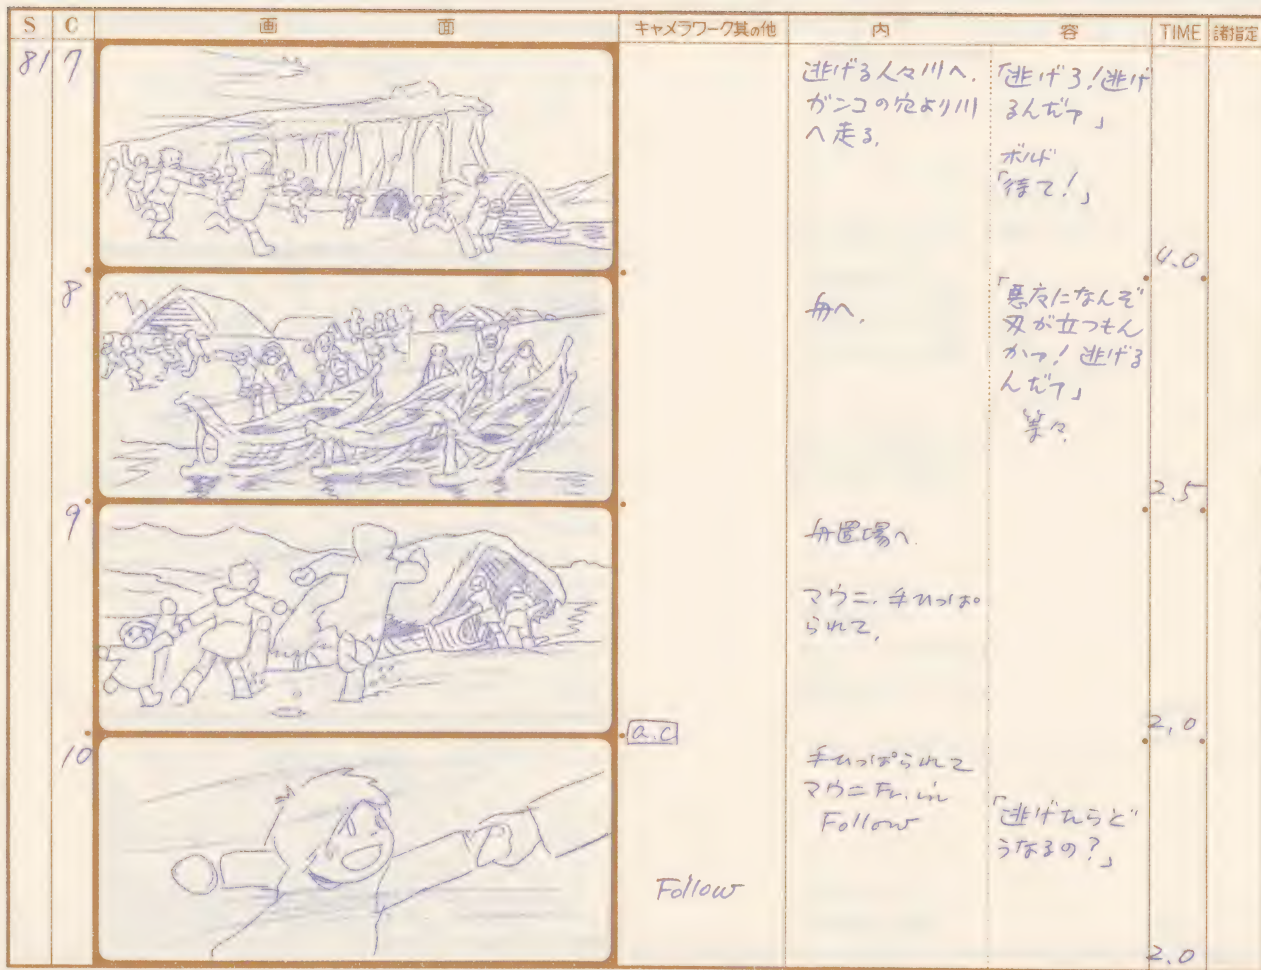 S C 画面 キャメラワーク其の他 内容 TIME 諸指定
81 7
逃げる人々川へ.
ガンコの穴より川
へ走る.
「逃げろ!逃げ
るんだァ」
ボルド
「待て!」
4.0
8
舟へ.
「悪魔になんぞ
刃が立つもん
かっ! 逃げる
んだァ」
等々.
2.5
9
舟置場へ.
マウニ. 手ひっぱ
られて.
2.0
10
a.c
Follow
手ひっぱられて
マウニ Fr. in
Follow
「逃げたらど
うなるの?」
2.0